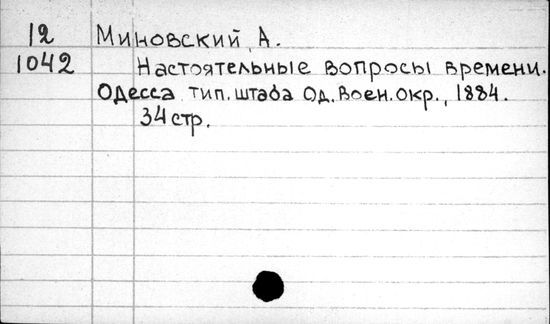 12 Миновский, А.
1042 Настоятельные вопросы времени.
Одесса тип. штаба Од. Воен. окр., 1884.
34 стр.